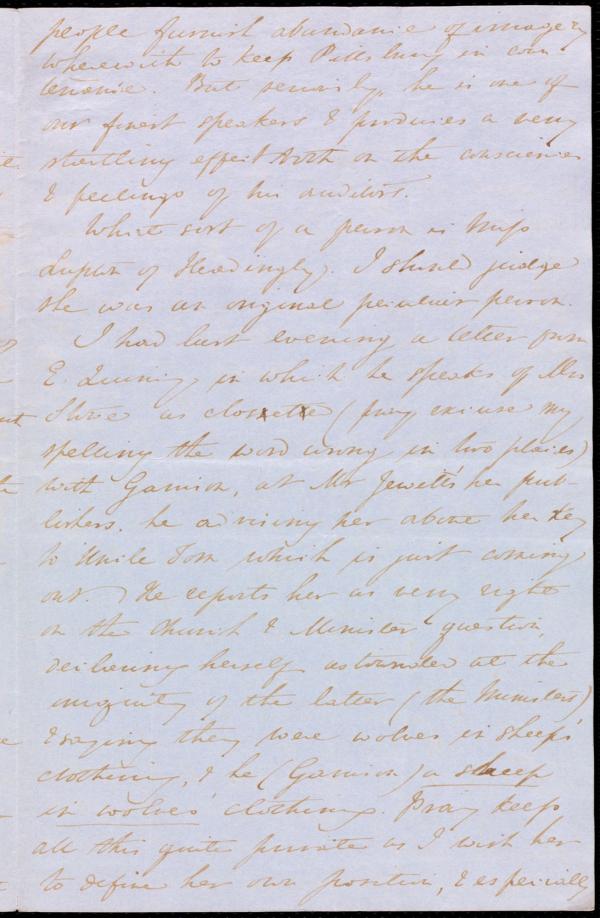 people furnish abundance of imagery
wherewith to keep Pillsbury in coun
tenance. But seriously, he is one of
our finest speakers & produces a very
startling effect both on the consciences
& feelings of his auditors.
What sort of a person is Miss
Lupton of Headingly. I should judge
she was an original peculiar person.
I had last evening a letter from
E. Quincy in which he speaks of Mrs
Stowe as closxetxe (pray excuse my
spelling the word wrong in two places)
with Garrison, at Mr Jewett's her pub-
lishers, he advising her about her Key
to Uncle Tom which is just coming
out. He reports her as very right
on the Church & Minister question,
declaring herself astounded at the
iniquity of the latter (the Ministers)
& saying they were wolves in sheeps'
clothing, & he (Garrison) a sheep
in wolves' clothing. Pray keep
all this quite private as I wish her
to define her own position, & especially